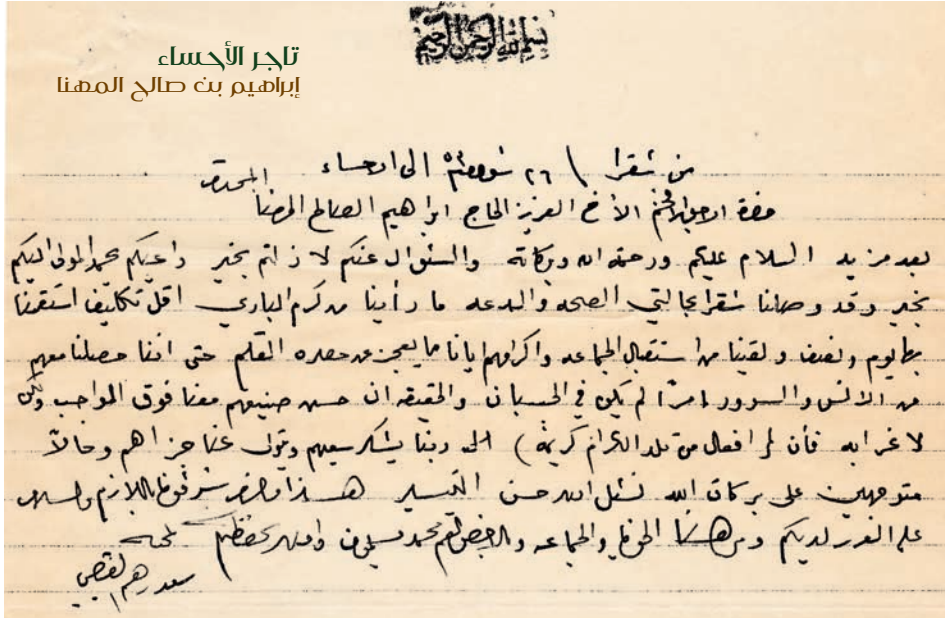 بسم الله الرحمن الرحيم
تاجر الأحساء
إبراهيم بن صالح المهنا
من شقرا / ٢٦ الى الاحساء
المحترم
حضرة الاجل الافخم الأخ العزيز الحاج ابراهيم الصالح المهنا
بعد مزيد السلام عليكم ورحمة الله وبركاته والسئوال عنكم لا زلتم بخير داعيكم بحمد المولى اليكم
بخير وقد وصلنا شقرا بحالتي الصحه والدعه ما رأينا من كرم الباري اقل تكليف استقمنا
يوم ونصف ولقينا من استقبال الجماعه واكرامهم ايانا ما يعجز عن حصره القلم حتى اننا حصلنا معهم
من الانس والسرور امرًا لم يكن في الحسبان والحقيقه ان حسن صنيعهم معنا فوق الواجب ولكن
لا غرابه فأن الافعال من تلد الكرام كريمة ) الله ربنا يشكر سعيهم ويتولى عنا جزاهم وحالاً
متوجهين على بركات الله نسئل الله حسن التيسير هذا ما لزم شرفونا باللازم والسلام
على العزيز لديكم ومن هنا والجماعه محمد والله يحفظكم
سعد القصبي